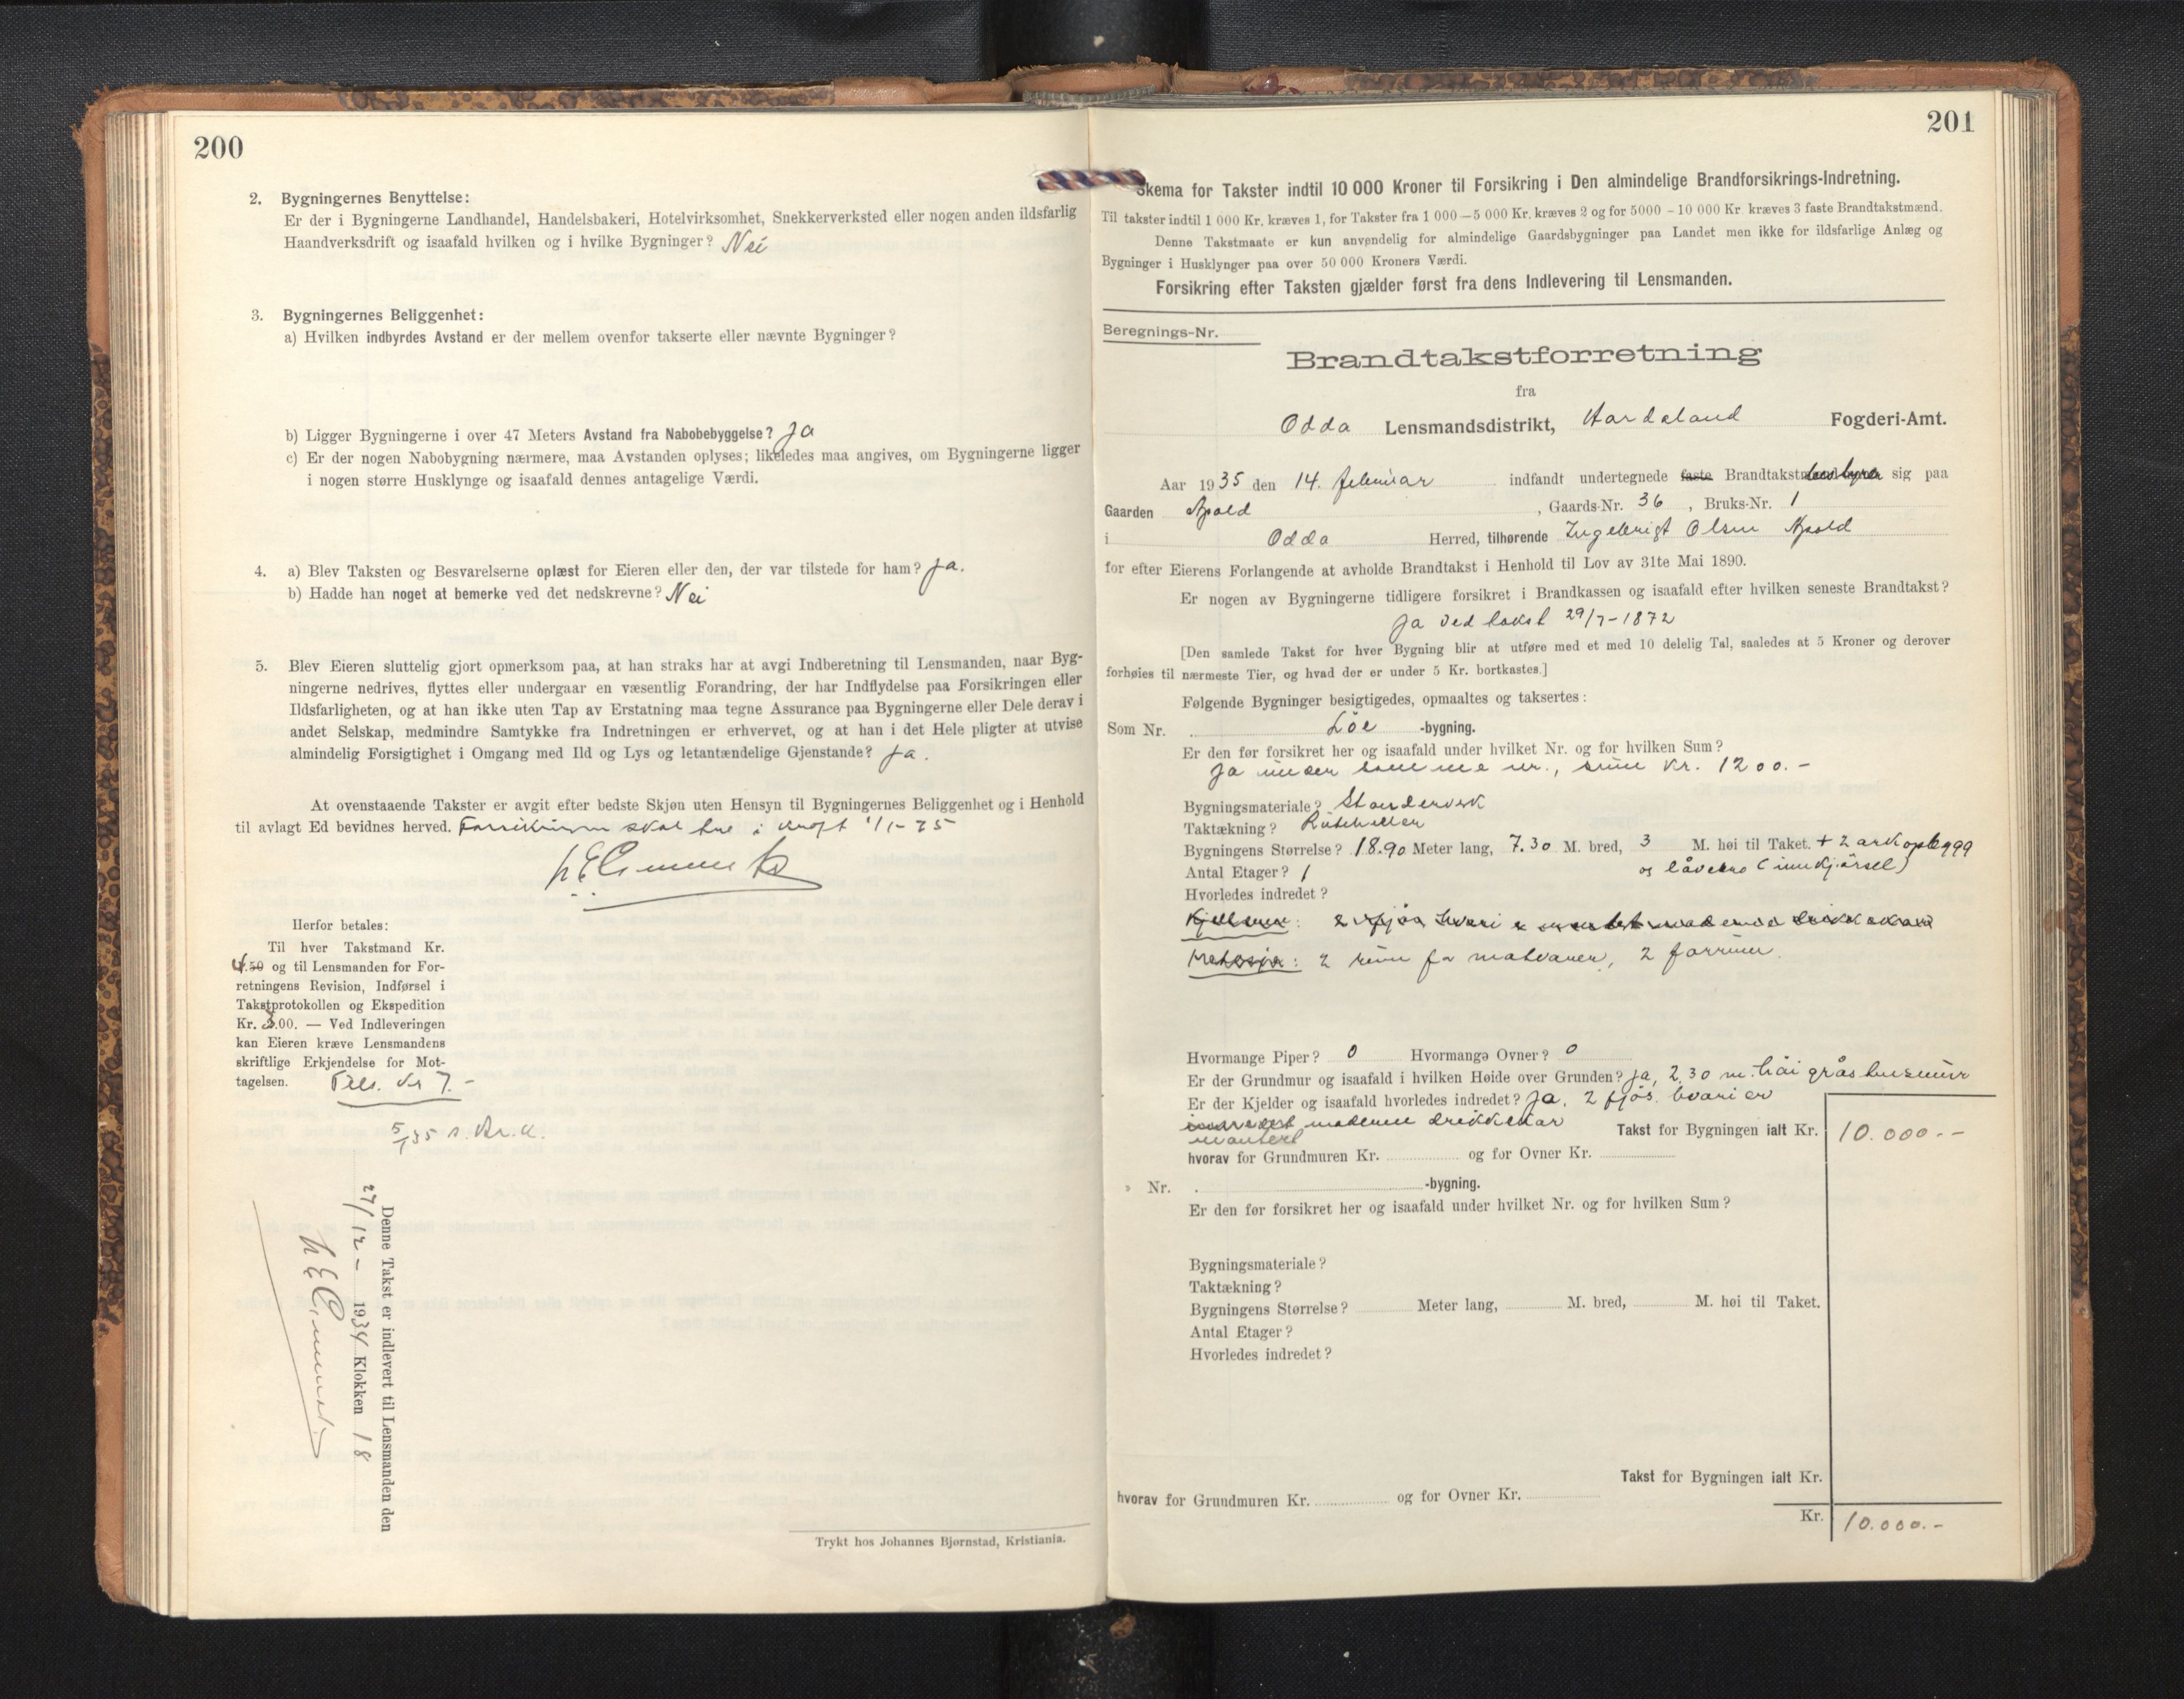 200
2. Bygningernes Benyttelse:
Er der i Bygningerne Landhandel, Handelsbakeri, Hotelvirksomhet, Snekkerverksted eller nogen anden ildsfarlig
Haandverksdrift og isaafald hvilken og i hvilke Bygninger? Nei
3. Bygningernes Beliggenhet:
a) Hvilken indbyrdes Avstand er der mellem ovenfor takserte eller nævnte Bygninger?
b) Ligger Bygningerne i over 47 Meters Avstand fra Nabobebyggelse? Ja
c) Er der nogen Nabobygning nærmere, maa Avstanden oplyses; likeledes maa angives, om Bygningerne ligger
i nogen større Husklynge og isaafald dennes antagelige Værdi.
4. a) Blev Taksten og Besvarelserne oplæst for Eieren eller den, der var tilstede for ham? Ja.
b) Hadde han noget at bemerke ved det nedskrevne? Nei
5. Blev Eieren sluttelig gjort opmerksom paa, at han straks har at avgi Indberetning til Lensmanden, naar Byg-
ningerne nedrives, flyttes eller undergaar en væsentlig Forandring, der har Indflydelse paa Forsikringen eller
Ildsfarligheten, og at han ikke uten Tap av Erstatning maa tegne Assurance paa Bygningerne eller Dele derav i
andet Selskap, medmindre Samtykke fra Indretningen er erhvervet, og at han i det Hele pligter at utvise
almindelig Forsigtighet i Omgang med Ild og Lys og letantændelige Gjenstande? Ja.
At ovenstaaende Takster er avgit efter bedste Skjøn uten Hensyn til Bygningernes Beliggenhet og i Henhold
til avlagt Ed bevidnes herved. Forsikringen skal tre i kraft 1/1-35
Herfor betales:
Til hver Takstmand Kr.
4.50 og til Lensmanden for For-
retningens Revision, Indførsel i
Takstprotokollen og Ekspedition
Kr. 3.00. — Ved Indleveringen
kan Eieren kræve Lensmandens
skriftlige Erkjendelse for Mot-
tagelsen. Tils. Kr 7.-
5/1 35
Denne Takst er indlevert til Lensmanden den
27/12- 1934 Klokken 18
Trykt hos Johannes Bjørnstad, Kristiania.
201
Skema for Takster indtil 10 000 Kroner til Forsikring i Den almindelige Brandforsikrings-Indretning.
Til takster indtil 1 000 Kr. kræves 1, for Takster fra 1 000—5 000 Kr. kræves 2 og for 5000 - 10 000 Kr kræves 3 faste Brandtakstmænd.
Denne Takstmaate er kun anvendelig for almindelige Gaardsbygninger paa Landet men ikke for ildsfarlige Anlæg og
Bygninger i Husklynger paa over 50 000 Kroners Værdi.
Forsikring efter Taksten gjælder først fra dens Indlevering til Lensmanden.
Beregnings-Nr.
Brandtakstforretning
fra
Odda Lensmandsdistrikt, Hardaland Fogderi-Amt.
Aar 1935 den 14. februar indfandt undertegnede faste Brandtakst sig paa
Gaarden Apold, Gaards-Nr. 36, Bruks-Nr. 1
i Odda Herred, tilhørende Ingebrigt Olsen Apold
for efter Eierens Forlangende at avholde Brandtakst i Henhold til Lov av 31te Mai 1890.
Er nogen av Bygningerne tidligere forsikret i Brandkassen og isaafald efter hvilken seneste Brandtakst?
Ja ved takst 29/7-1872
[Den samlede Takst for hver Bygning blir at utføre med et med 10 delelig Tal, saaledes at 5 Kroner og derover
forhøies til nærmeste Tier, og hvad der er under 5 Kr. bortkastes.]
Følgende Bygninger besigtigedes, opmaaltes og taksertes:
Som Nr. Löe -bygning.
Er den før forsikret her og isaafald under hvilket Nr. og for hvilken Sum?
Ja under samme nr., sum kr. 1200.-
Bygningsmateriale? Standerverk
Taktækning? Ruteheller
Bygningens Størrelse? 18.90 Meter lang, 7.30 M. bred, 3 M. høi til Taket. + 2 arkoplegg
Antal Etager? 1 og låvebro (innkjörsel)
Hvorledes indredet?
Kjelleren: 2 fjös hvari er
2 rum for matvarer, 2 forrum.
Hvormange Piper? 0 Hvormange Ovner? 0
Er der Grundmur og isaafald i hvilken Høide over Grunden? Ja, 2.30 m. höi gråstensmur
Er der Kjelder og isaafald hvorledes indredet? Ja, 2 fjös. hvari er
montert moderne drikkekar Takst for Bygningen ialt Kr. 10.000.-
hvorav for Grundmuren Kr. og for Ovner Kr.
Nr. -bygning.
Er den før forsikret her og isaafald under hvilket Nr. og for hvilken Sum?
Bygningsmateriale?
Taktækning?
Bygningens Størrelse? Meter lang, M. bred, M. høi til Taket.
Antal Etager?
Hvorledes indredet?
Takst for Bygningen ialt Kr.
hvorav for Grundmuren Kr. og for Ovner Kr.
Kr. 10.000.-